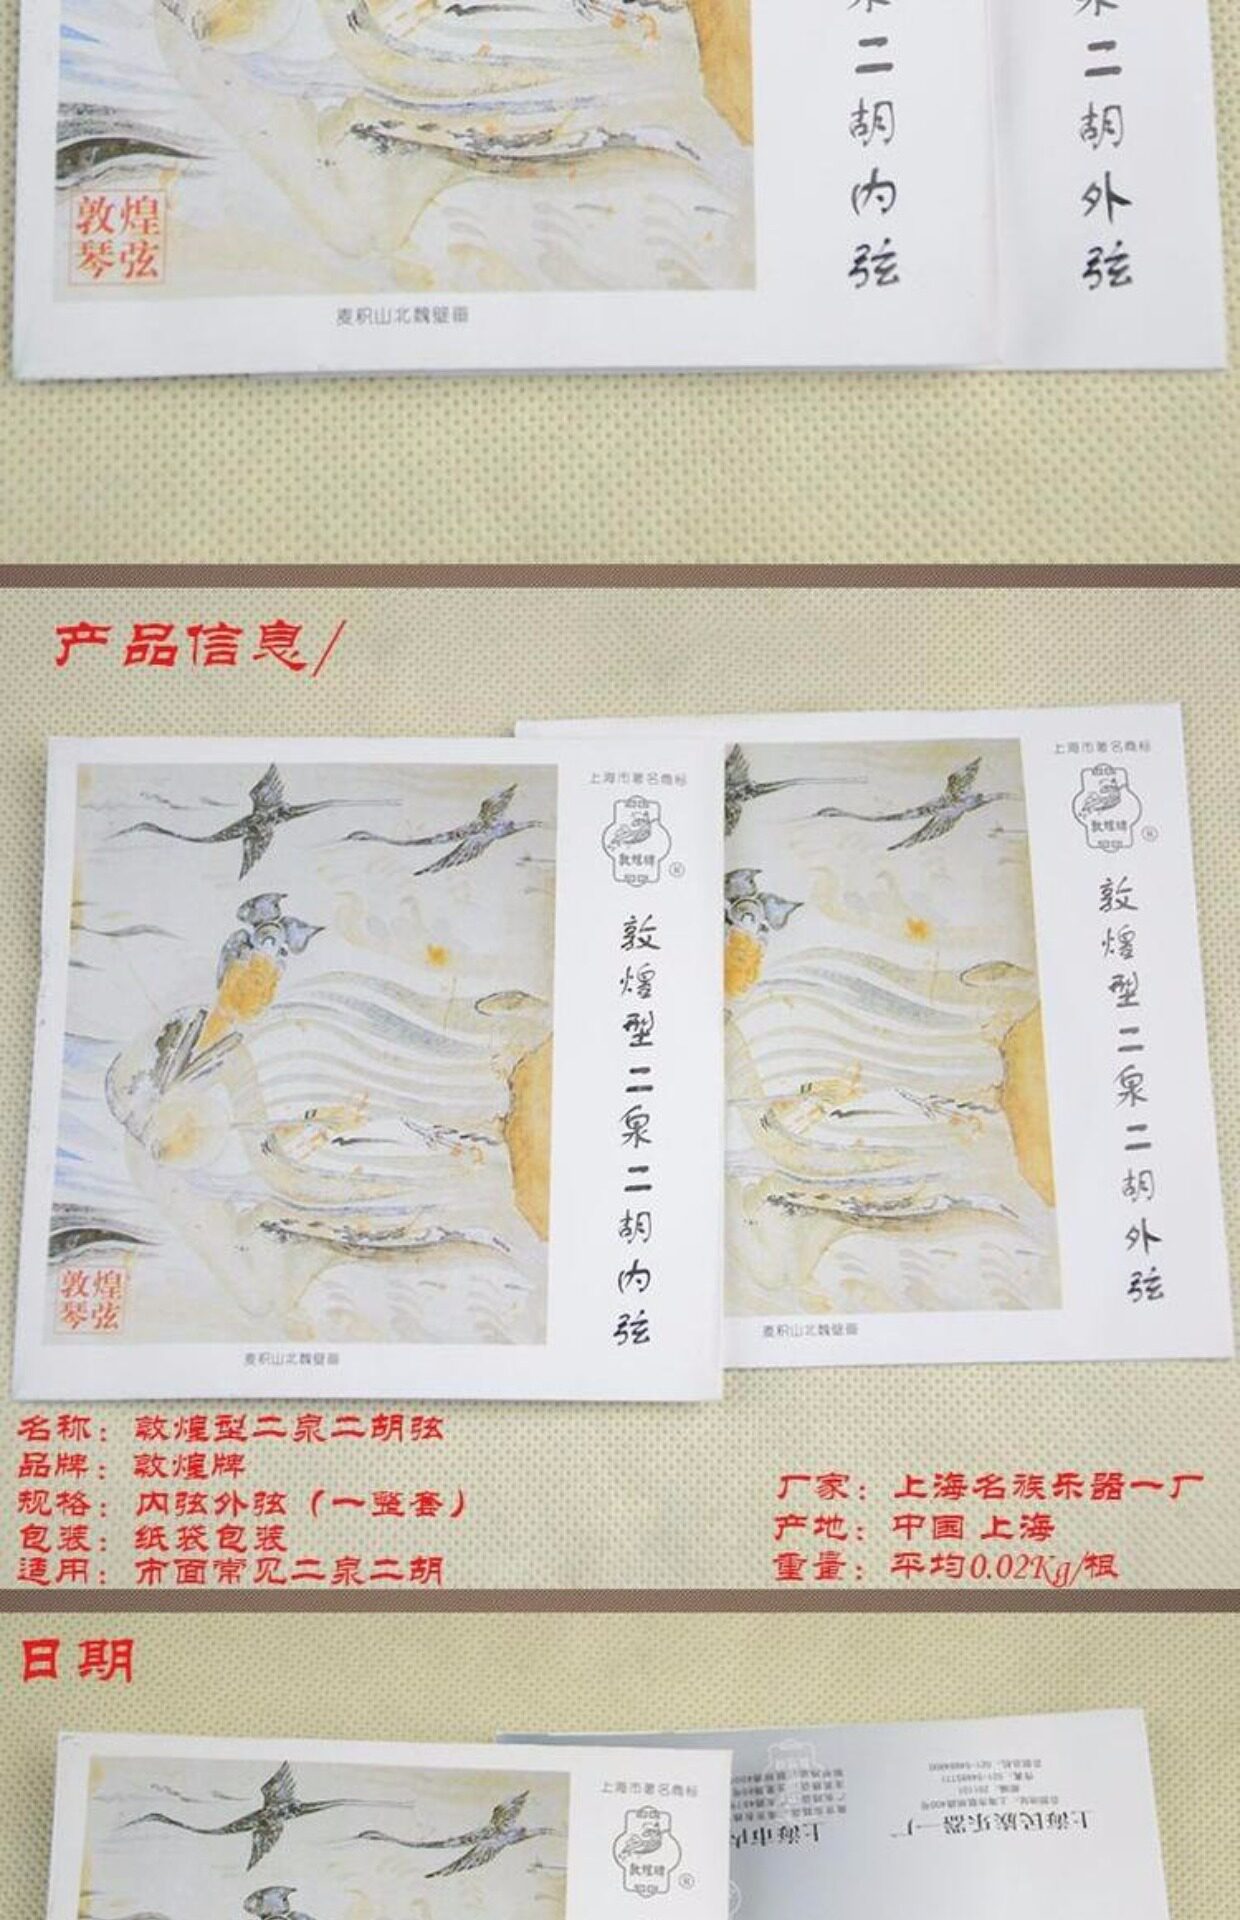 泉二胡内弦
泉二胡外弦
敦煌
琴弦
麦积山北魏壁画
产品信息/
上海市著名商标
敦煌牌
®
敦煌型二泉二胡内弦
敦煌
琴弦
麦积山北魏壁画
上海市著名商标
敦煌牌
®
敦煌型二泉二胡外弦
麦积山北魏壁画
名称：敦煌型二泉二胡弦
品牌：敦煌牌
规格：内弦外弦（一整套）
包装：纸袋包装
适用：市面常见二泉二胡
厂家：上海名族乐器一厂
产地：中国 上海
重量：平均0.02Kg/根
日期
上海市著名商标
敦煌牌
®
上海民族乐器一厂